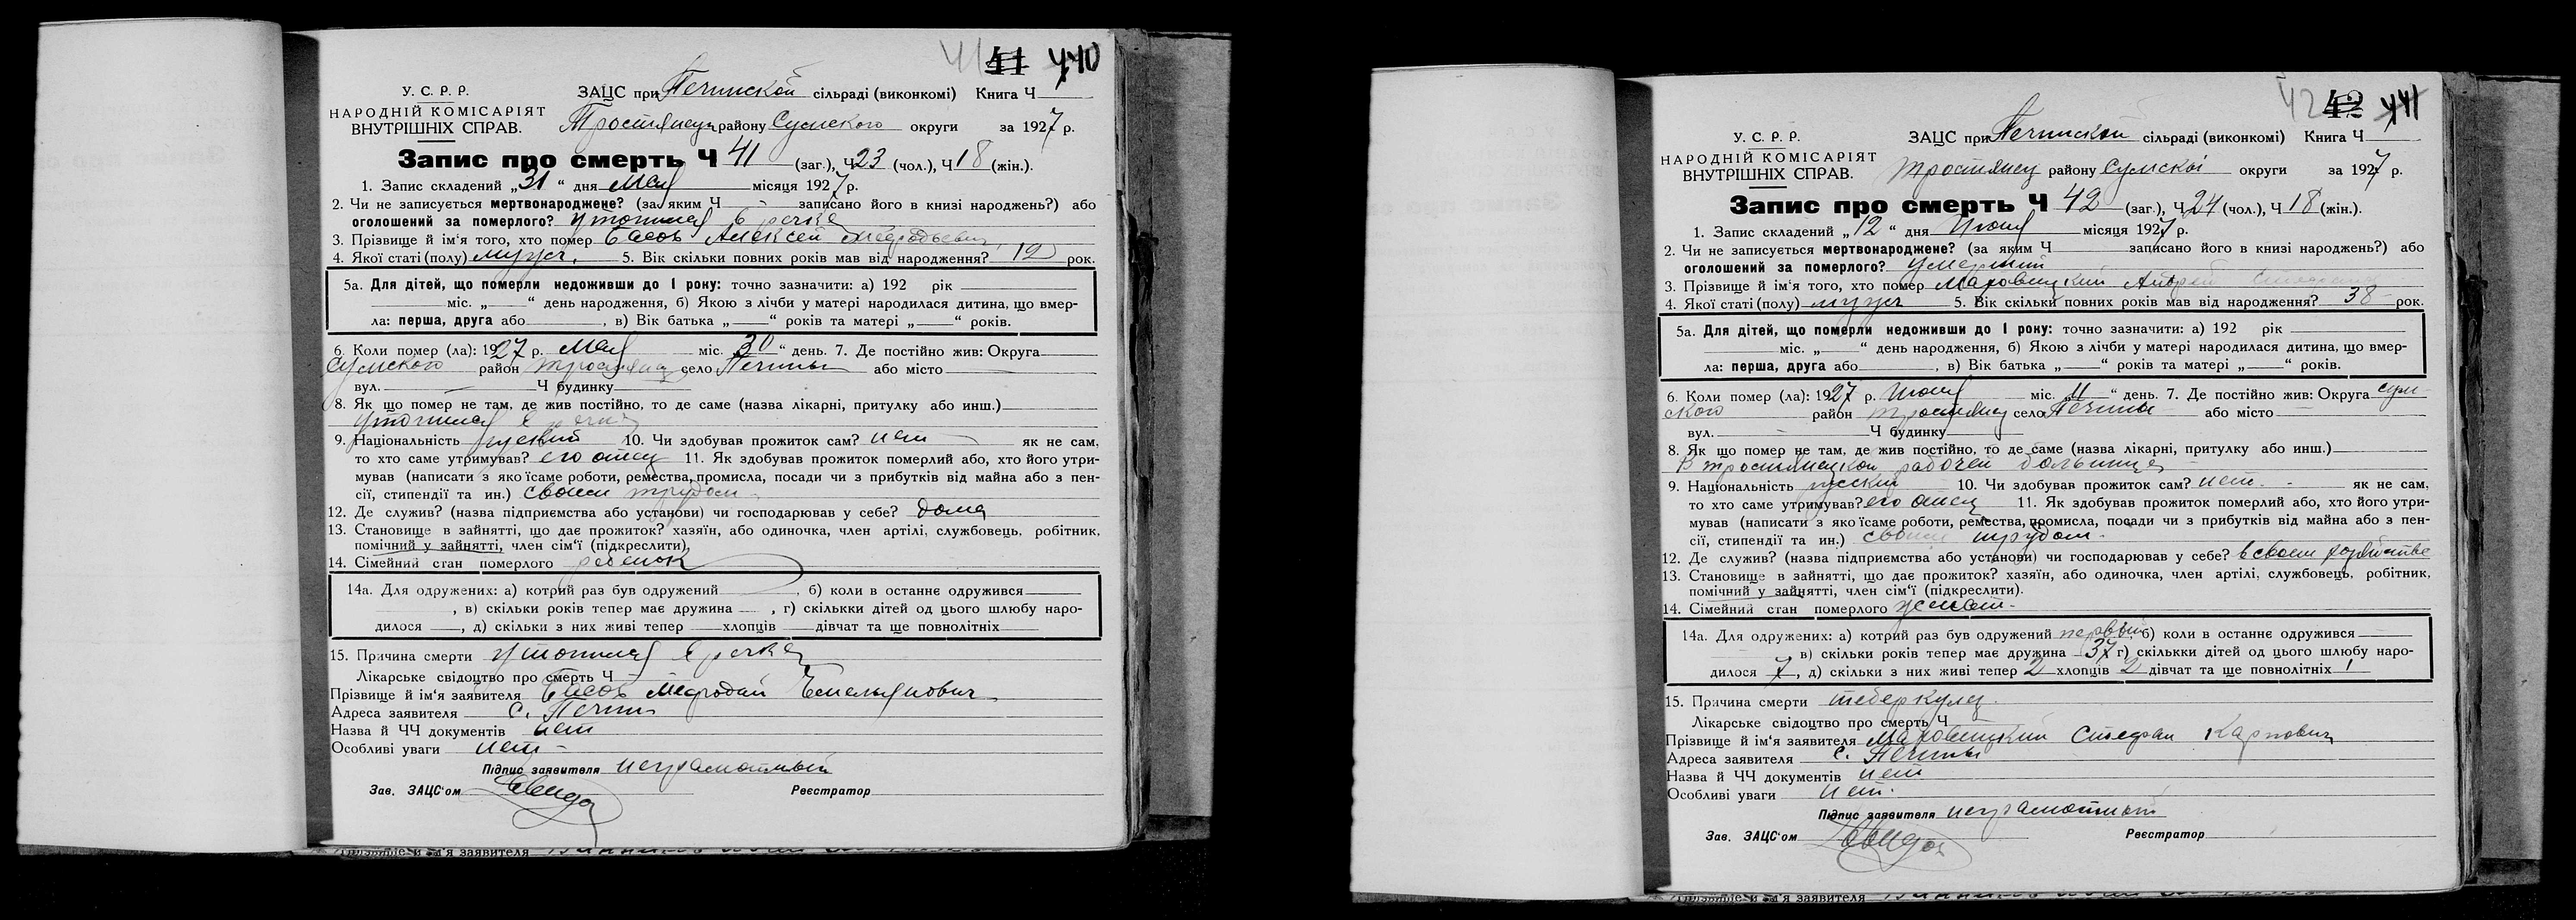 41 41 440
У. С. Р. Р.
НАРОДНІЙ КОМІСАРІЯТ
ВНУТРІШНІХ СПРАВ.
ЗАЦС при Печинской сільраді (виконкомі) Книга Ч
Тростянец району Сумского округи за 1927 р.
Запис про смерть Ч 41 (заг.), Ч 23 (чол.), Ч 18 (жін.).
1. Запис складений „31“ дня Мая місяця 1927 р.
2. Чи не записується мертвонароджене? (за яким Ч - записано його в книзі народжень?) або
оголошений за померлого? утопился в речке
3. Прізвище й ім'я того, хто помер Басов Алексей
4. Якої статі (полу) мужск. 5. Вік скільки повних років мав від народження? 12 рок.
5а. Для дітей, що померли недоживши до 1 року: точно зазначити: а) 192 рік
міс. „ “ день народження, б) Якою з лічби у матері народилася дитина, що вмер-
ла: перша, друга або , в) Вік батька „ “ років та матері „ “ років.
6. Коли помер (ла): 1927 р. Мая міс. 30 “ день. 7. Де постійно жив: Округа
Сумского район Тростянец село Печины або місто
вул. Ч будинку
8. Як що помер не там, де жив постійно, то де саме (назва лікарні, притулку або инш.)
утопился в речке
9. Національність русский 10. Чи здобував прожиток сам? нет як не сам,
то хто саме утримував? его отец 11. Як здобував прожиток померлий або, хто його утри-
мував (написати з якоїсаме роботи, ремества, промисла, посади чи з прибутків від майна або з пен-
сії, стипендії та ин.) своим трудом
12. Де служив? (назва підприємства або установи) чи господарював у себе? дома
13. Становище в зайнятті, що дає прожиток? хазяїн, або одиночка, член артілі, службовець, робітник,
помічний у зайнятті, член сім'ї (підкреслити)
14. Сімейний стан померлого ребенок
14а. Для одружених: а) котрий раз був одружений , б) коли в останнє одружився
, в) скільки років тепер має дружина , г) скількки дітей од цього шлюбу наро-
дилося , д) скільки з них живі тепер хлопців дівчат та ще повнолітніх
15. Причина смерти утопился в речке
Лікарське свідоцтво про смерть Ч
Прізвище й ім'я заявителя Басов Мефодий Емельянович
Адреса заявителя с. Печины
Назва й ЧЧ документів нет
Особливі уваги нет -
Підпис заявителя неграмотный
Зав. ЗАЦС'ом Реєстратор
42 42 441
У. С. Р. Р.
НАРОДНІЙ КОМІСАРІЯТ
ВНУТРІШНІХ СПРАВ.
ЗАЦС при Печинской сільраді (виконкомі) Книга Ч
Тростянец району Сумской округи за 1927 р.
Запис про смерть Ч 42 (заг.), Ч 24 (чол.), Ч 18 (жін.).
1. Запис складений „12“ дня Июня місяця 1927 р.
2. Чи не записується мертвонароджене? (за яким Ч записано його в книзі народжень?) або
оголошений за померлого? умерший
3. Прізвище й ім'я того, хто помер Маровицкий Андрей
4. Якої статі (полу) мужск 5. Вік скільки повних років мав від народження? 38 рок.
5а. Для дітей, що померли недоживши до 1 року: точно зазначити: а) 192 рік
міс. „ “ день народження, б) Якою з лічби у матері народилася дитина, що вмер-
ла: перша, друга або , в) Вік батька „ “ років та матері „ “ років.
6. Коли помер (ла): 1927 р. Июня міс. „11“ день. 7. Де постійно жив: Округа Сум-
ского район Тростянец село Печины або місто
вул. Ч будинку
8. Як що помер не там, де жив постійно, то де саме (назва лікарні, притулку або инш.)
В тростянецкой рабочей больнице
9. Національність русский 10. Чи здобував прожиток сам? нет. як не сам,
то хто саме утримував? его отец 11. Як здобував прожиток померлий або, хто його утри-
мував (написати з якоїсаме роботи, ремества, промисла, посади чи з прибутків від майна або з пен-
сії, стипендії та ин.) своим трудом.
12. Де служив? (назва підприємства або установи) чи господарював у себе? в своем хозяйстве
13. Становище в зайнятті, що дає прожиток? хазяїн, або одиночка, член артілі, службовець, робітник,
помічний у зайнятті, член сім'ї (підкреслити).
14. Сімейний стан померлого женат.
14а. Для одружених: а) котрий раз був одружений первый б) коли в останнє одружився
в) скільки років тепер має дружина 37 г) скількки дітей од цього шлюбу наро-
дилося 7, д) скільки з них живі тепер 2 хлопців 2 дівчат та ще повнолітніх 1
15. Причина смерти теберкулез.
Лікарське свідоцтво про смерть Ч
Прізвище й ім'я заявителя Маровицкий Стефан Карпович
Адреса заявителя с. Печины
Назва й ЧЧ документів нет
Особливі уваги нет.
Підпис заявителя неграмотный
Зав. ЗАЦС'ом Реєстратор